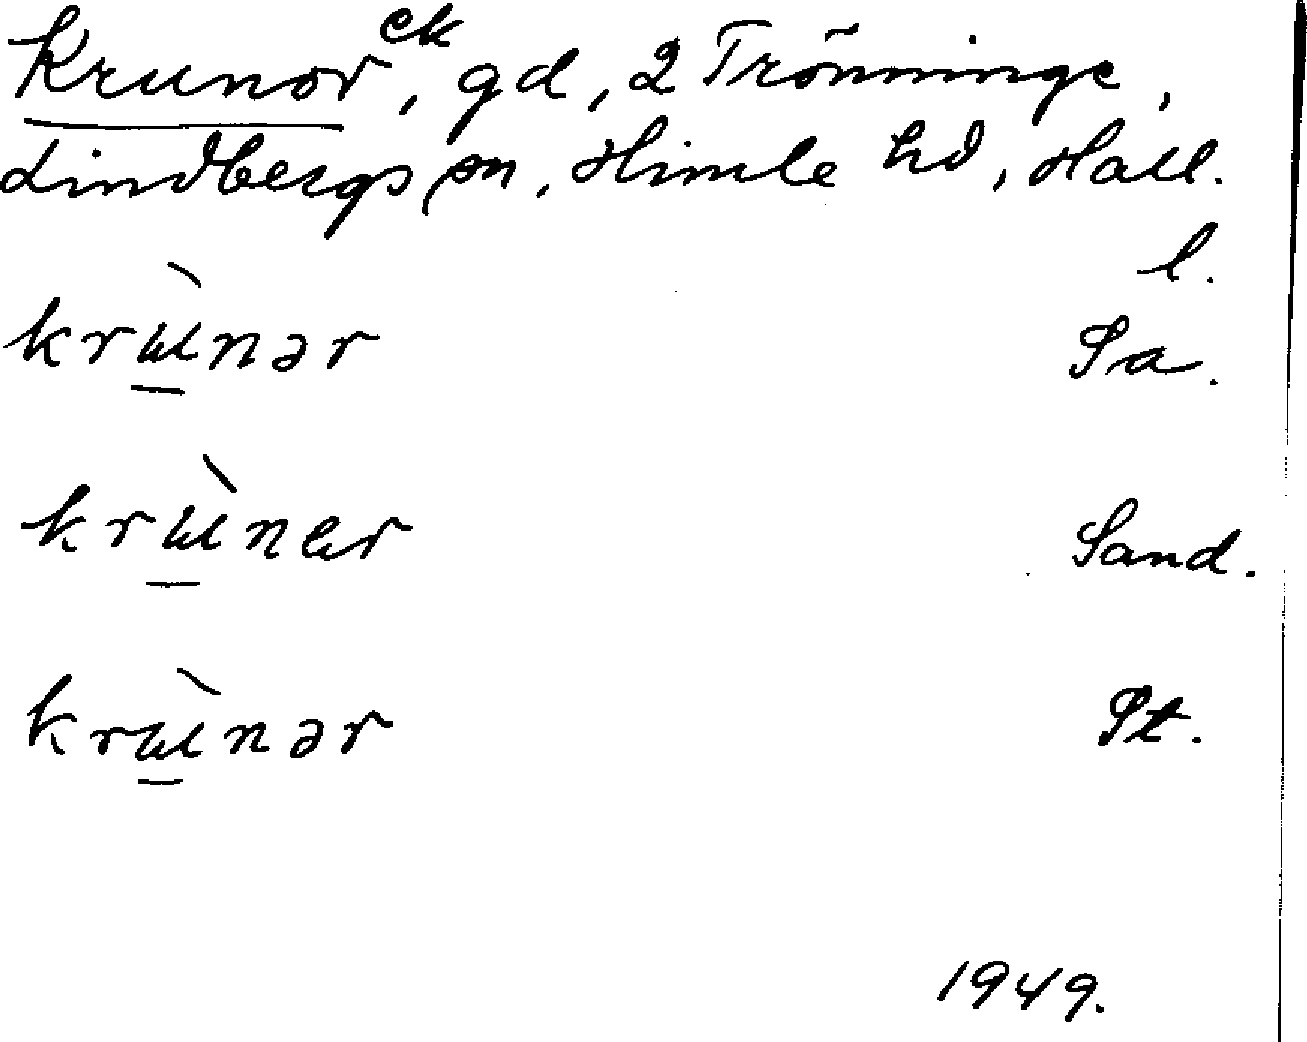 Krunor ek, gd, 2 Trönninge,
Lindbergs sn, Himle hd, Hall.
l.
krɯ̱̀nər Sa.
krɯ̱̀nɐr Sand.
krɯ̱̀nər St.
1949.